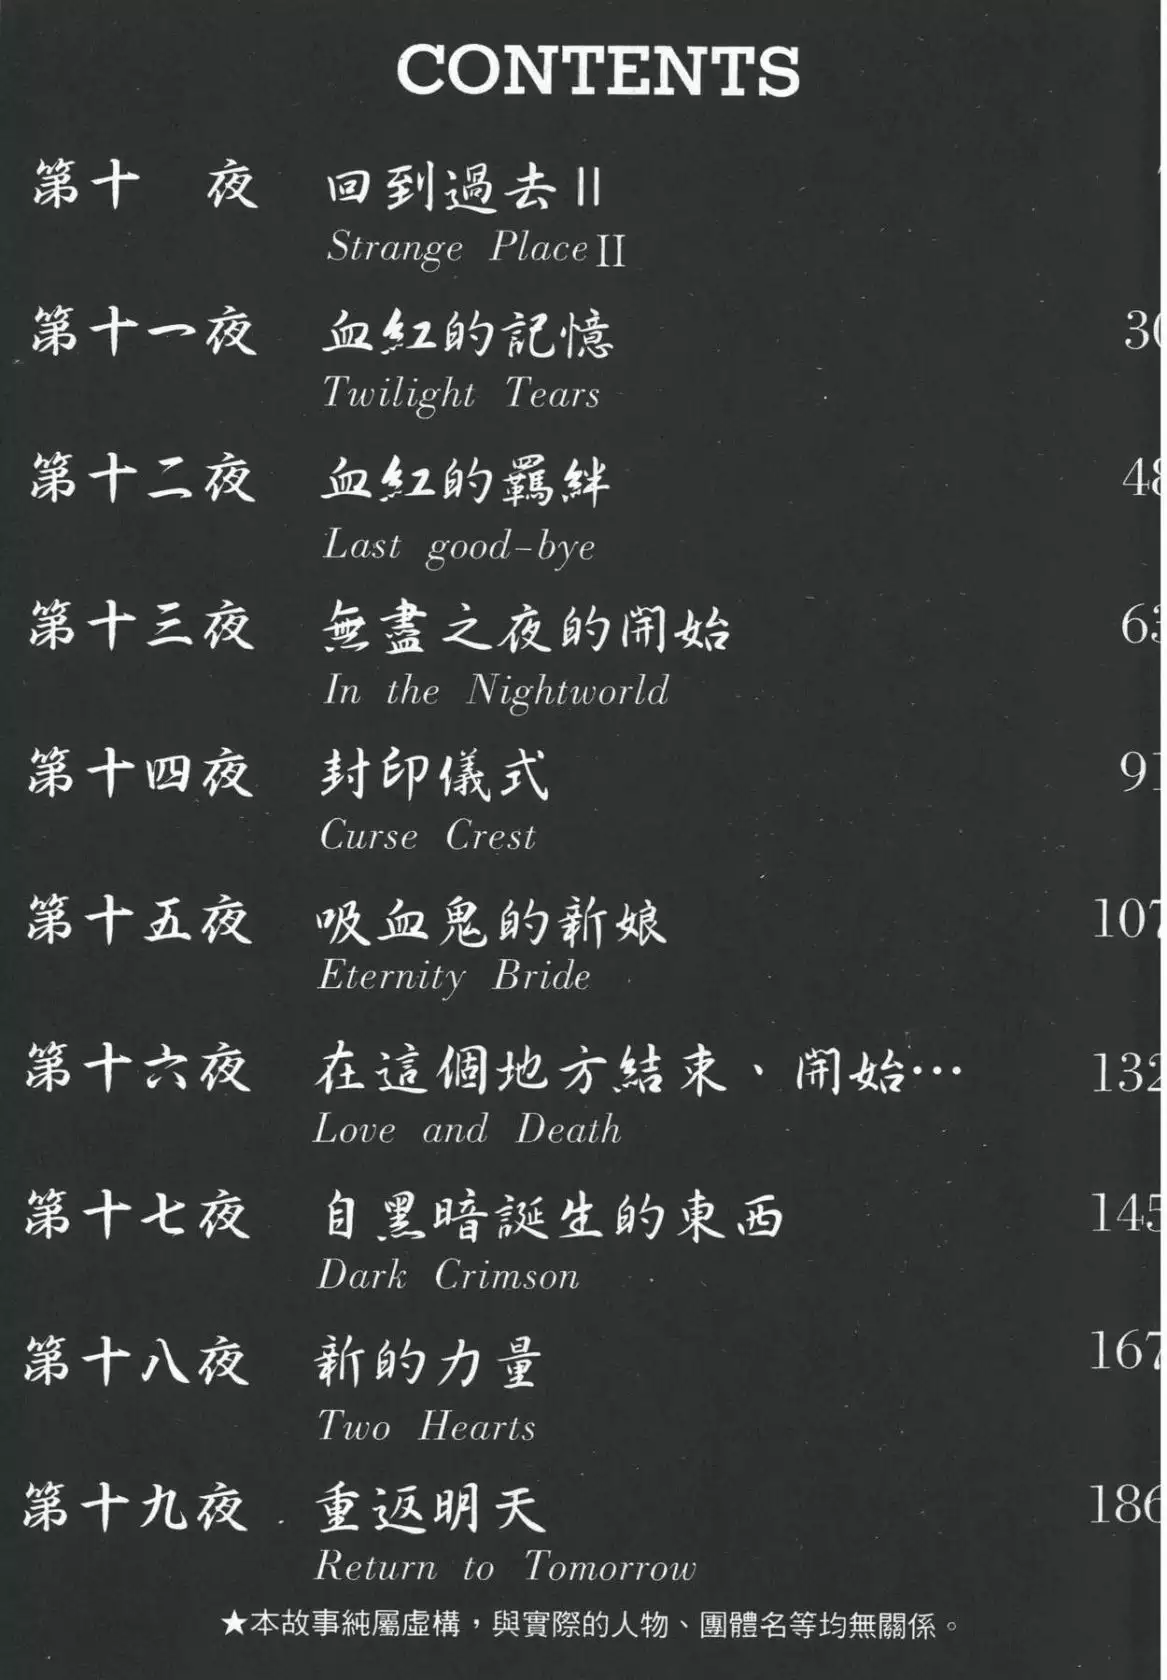 CONTENTS
第十　夜 回到過去II
Strange Place II
第十一夜 血紅的記憶 30
Twilight Tears
第十二夜 血紅的羈絆 48
Last good-bye
第十三夜 無盡之夜的開始 63
In the Nightworld
第十四夜 封印儀式 91
Curse Crest
第十五夜 吸血鬼的新娘 107
Eternity Bride
第十六夜 在這個地方結束、開始… 132
Love and Death
第十七夜 自黑暗誕生的東西 145
Dark Crimson
第十八夜 新的力量 167
Two Hearts
第十九夜 重返明天 186
Return to Tomorrow
★本故事純屬虛構，與實際的人物、團體名等均無關係。